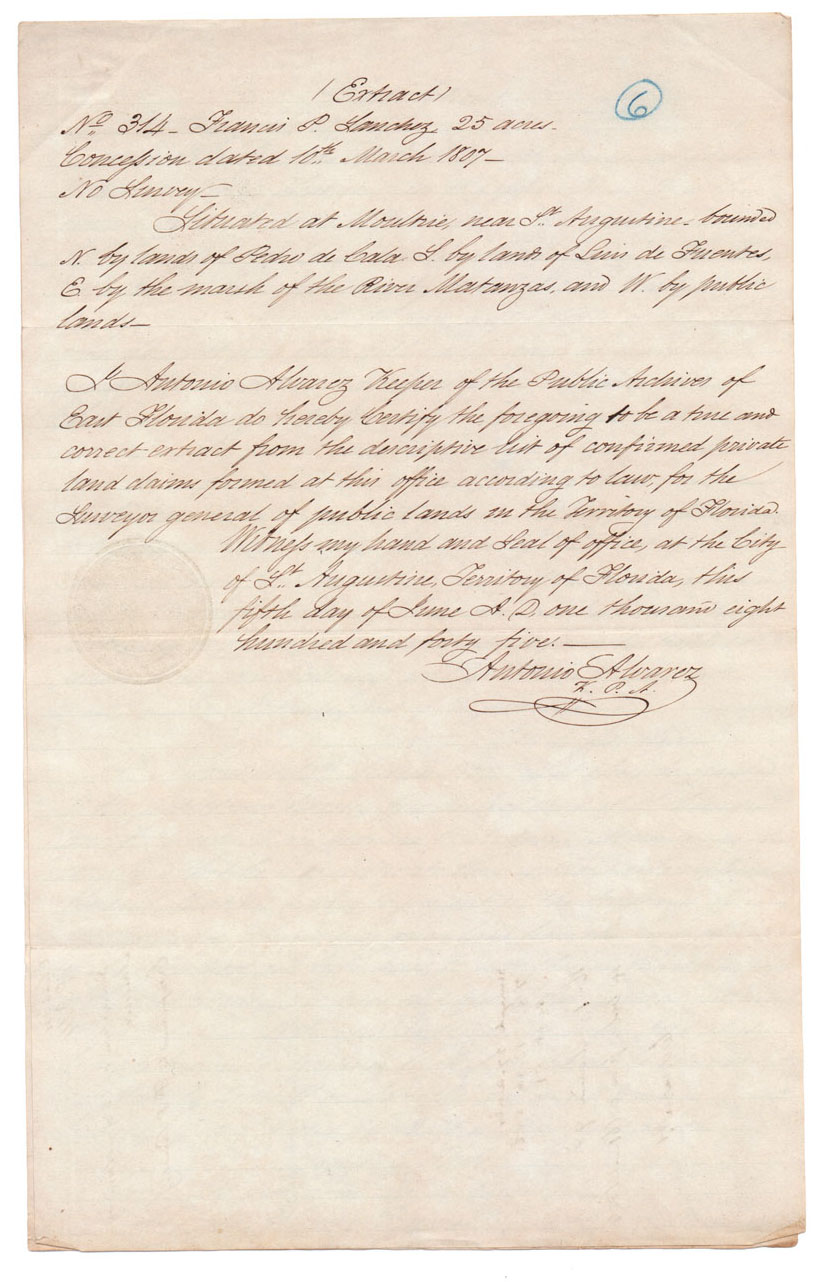 (Extract)
6
No. 314_ Francis P. Sanchez, 25 acres_
Concession dated 10th March 1807_
No Survey_
Situated at Moultrie, near St. Augustine_ bounded
N. by lands of Pedro de Cala S. by lands of Luis de Fuentes,
E. by the marsh of the River Matanzas, and W. by public
lands_
I, Antonio Alvarez Keeper of the Public Archives of
East Florida do hereby Certify the foregoing to be a true and
correct extract from the descriptive list of confirmed private
land claims formed at this office according to law, for the
Surveyor general of public lands in the Territory of Florida.
Witness my hand and Seal of office, at the City
of St. Augustine, Territory of Florida, this
fifth day of June A. D. one thousand eight
hundred and forty five._
Antonio Alvarez
K. P. A.